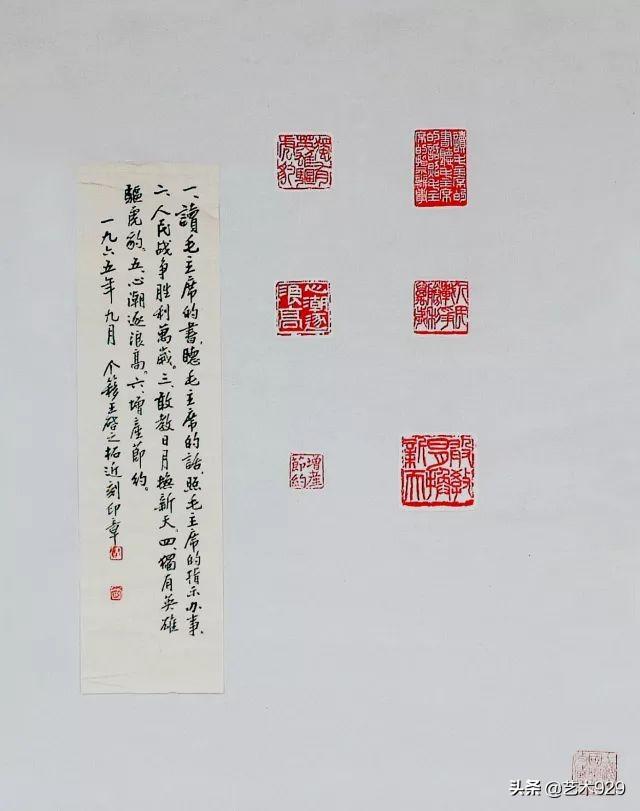 讀毛主席的
書聽毛主席
的話照毛主
席的指示辦事
人民
戰爭
勝利
萬歲
敢教
日月換
新天
獨有
英雄驅
虎豹
心潮逐
浪高
增產
節約
一、讀毛主席的書,聽毛主席的話,照毛主席的指示办事、
二、人民战争胜利萬歲。三、敢教日月换新天。四、獨有英雄
驅虎豹。五、心潮逐浪高。六、增產節约。
一九六五年九月 个簃王 之拓近刻印章
头条 @艺术929